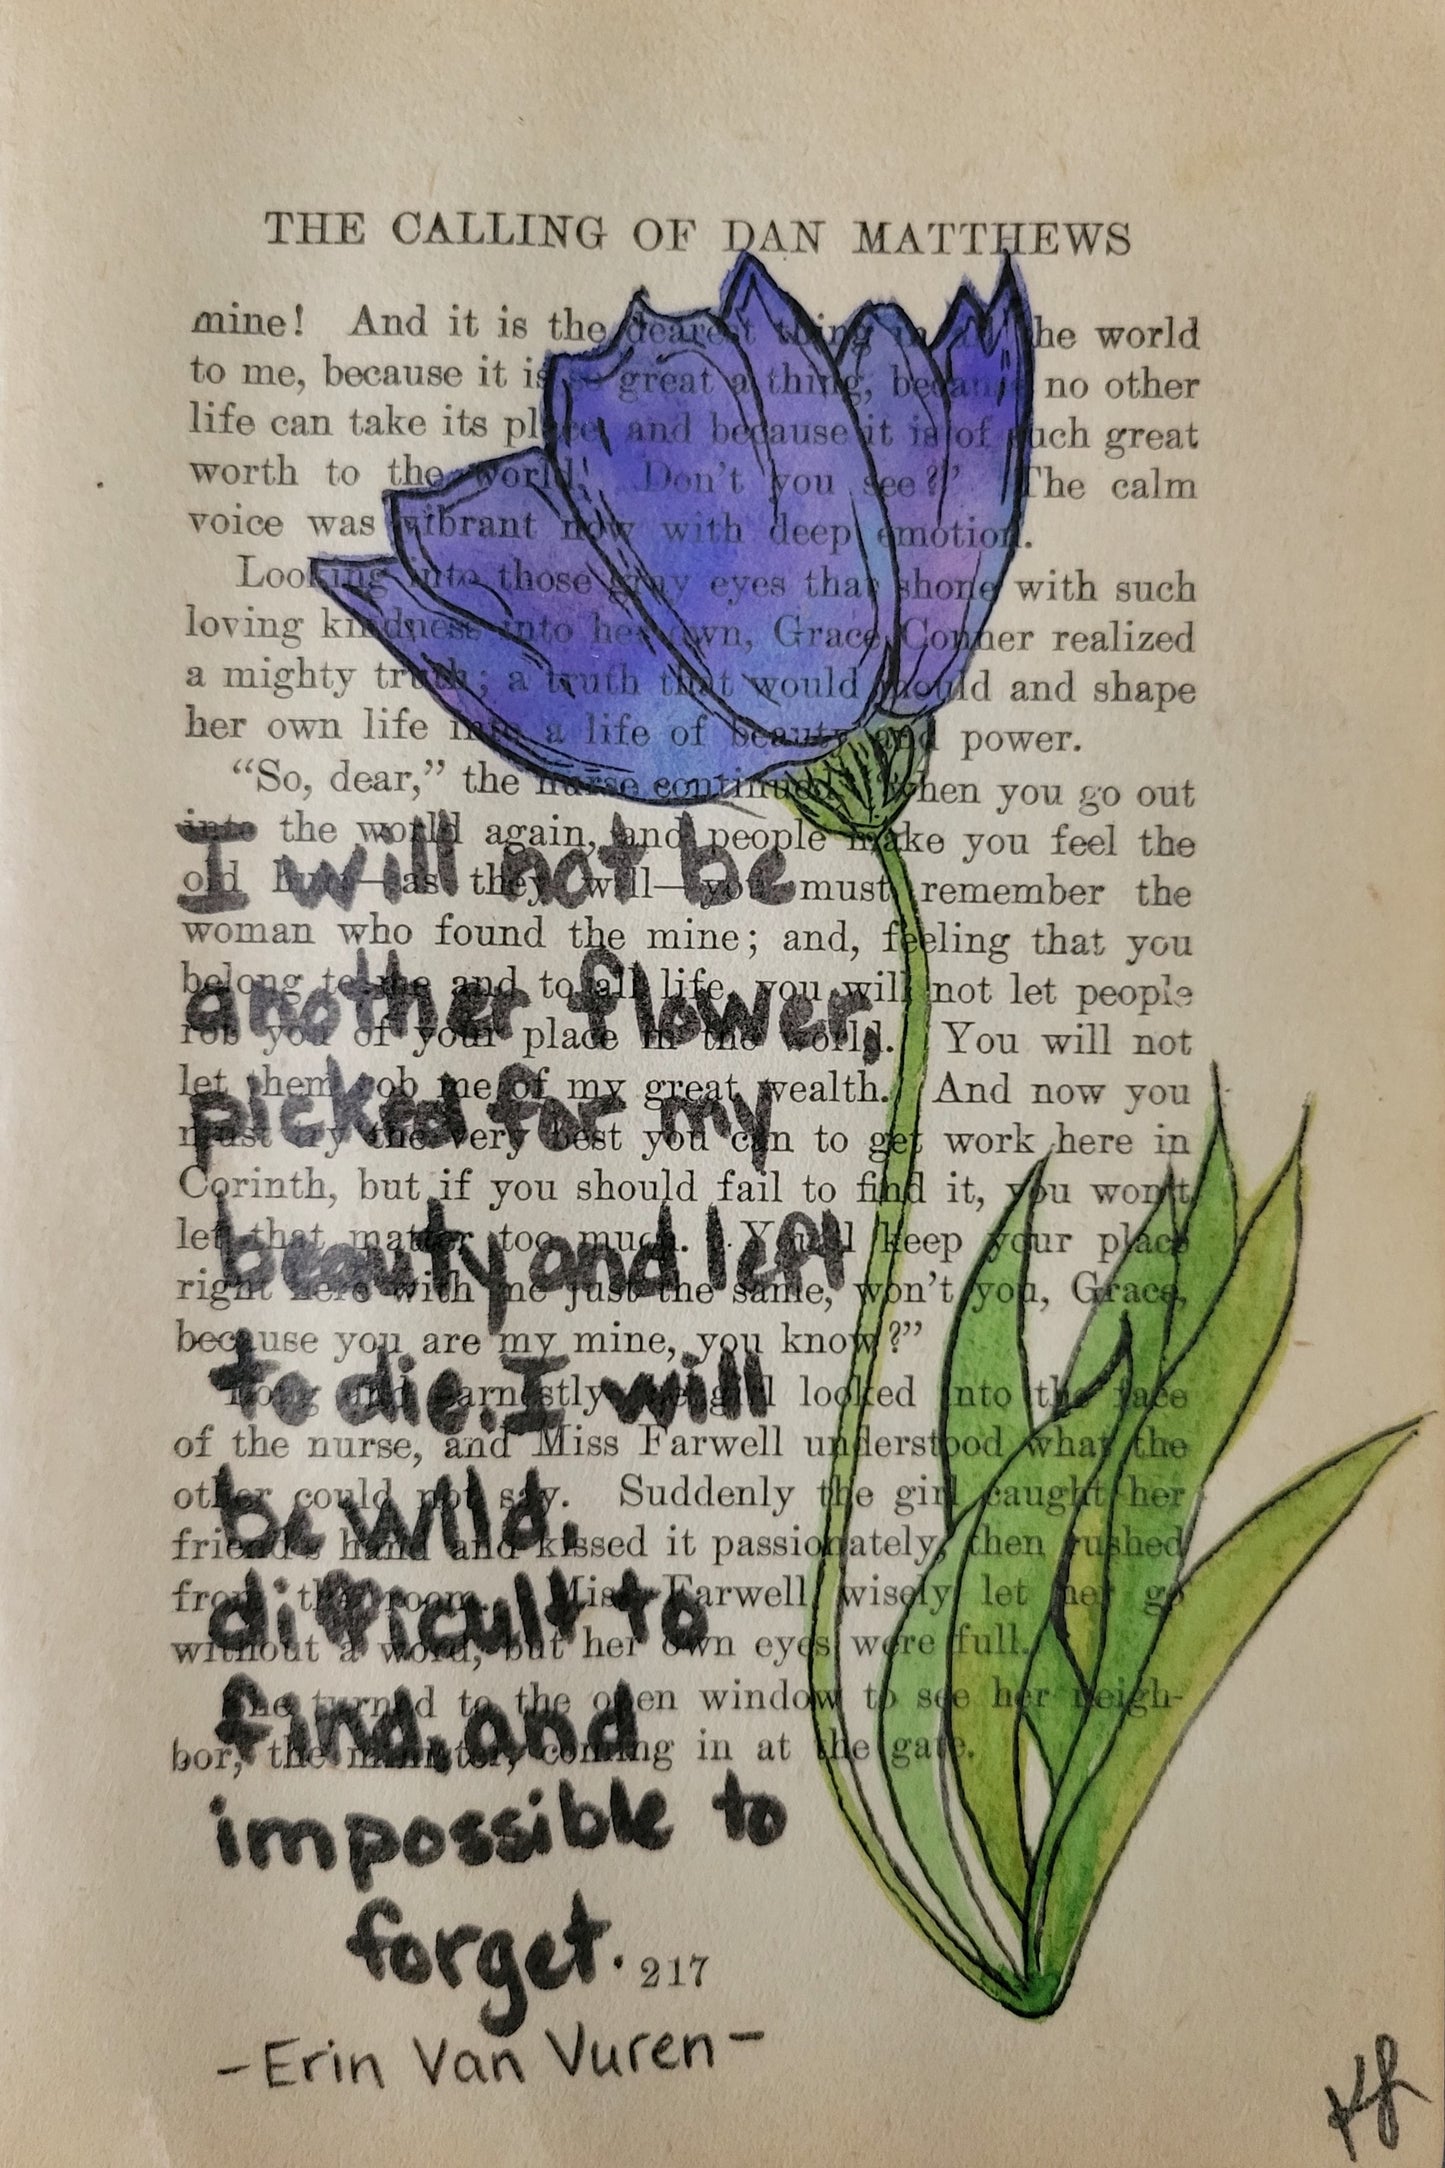 THE CALLING OF DAN MATTHEWS
mine! And it is the dearest thing in all the world
to me, because it is so great a thing, because no other
life can take its place, and because it is of such great
worth to the world. Don't you see?" The calm
voice was vibrant now with deep emotion.
Looking into those gray eyes that shone with such
loving kindness into her own, Grace Conner realized
a mighty truth; a truth that would mould and shape
her own life into a life of beauty and power.
"So, dear," the nurse continued, "when you go out
into the world again, and people make you feel the
old hurt—as they will—you must remember the
woman who found the mine; and, feeling that you
belong to me and to all life, you will not let people
rob you of your place in the world. You will not
let them rob me of my great wealth. And now you
must try the very best you can to get work here in
Corinth, but if you should fail to find it, you won't
let that matter too much. You'll keep your place
right here with me just the same, won't you, Grace,
because you are my mine, you know?"
Long and earnestly the girl looked into the face
of the nurse, and Miss Farwell understood what the
other could not say. Suddenly the girl caught her
friend's hand and kissed it passionately, then rushed
from the room. Miss Farwell wisely let her go
without a word, but her own eyes were full.
She turned to the open window to see her neigh-
bor, the minister, coming in at the gate.
217
I will not be
another flower,
picked for my
beauty and left
to die. I will
be wild,
difficult to
find, and
impossible to
forget.
-Erin Van Vuren-